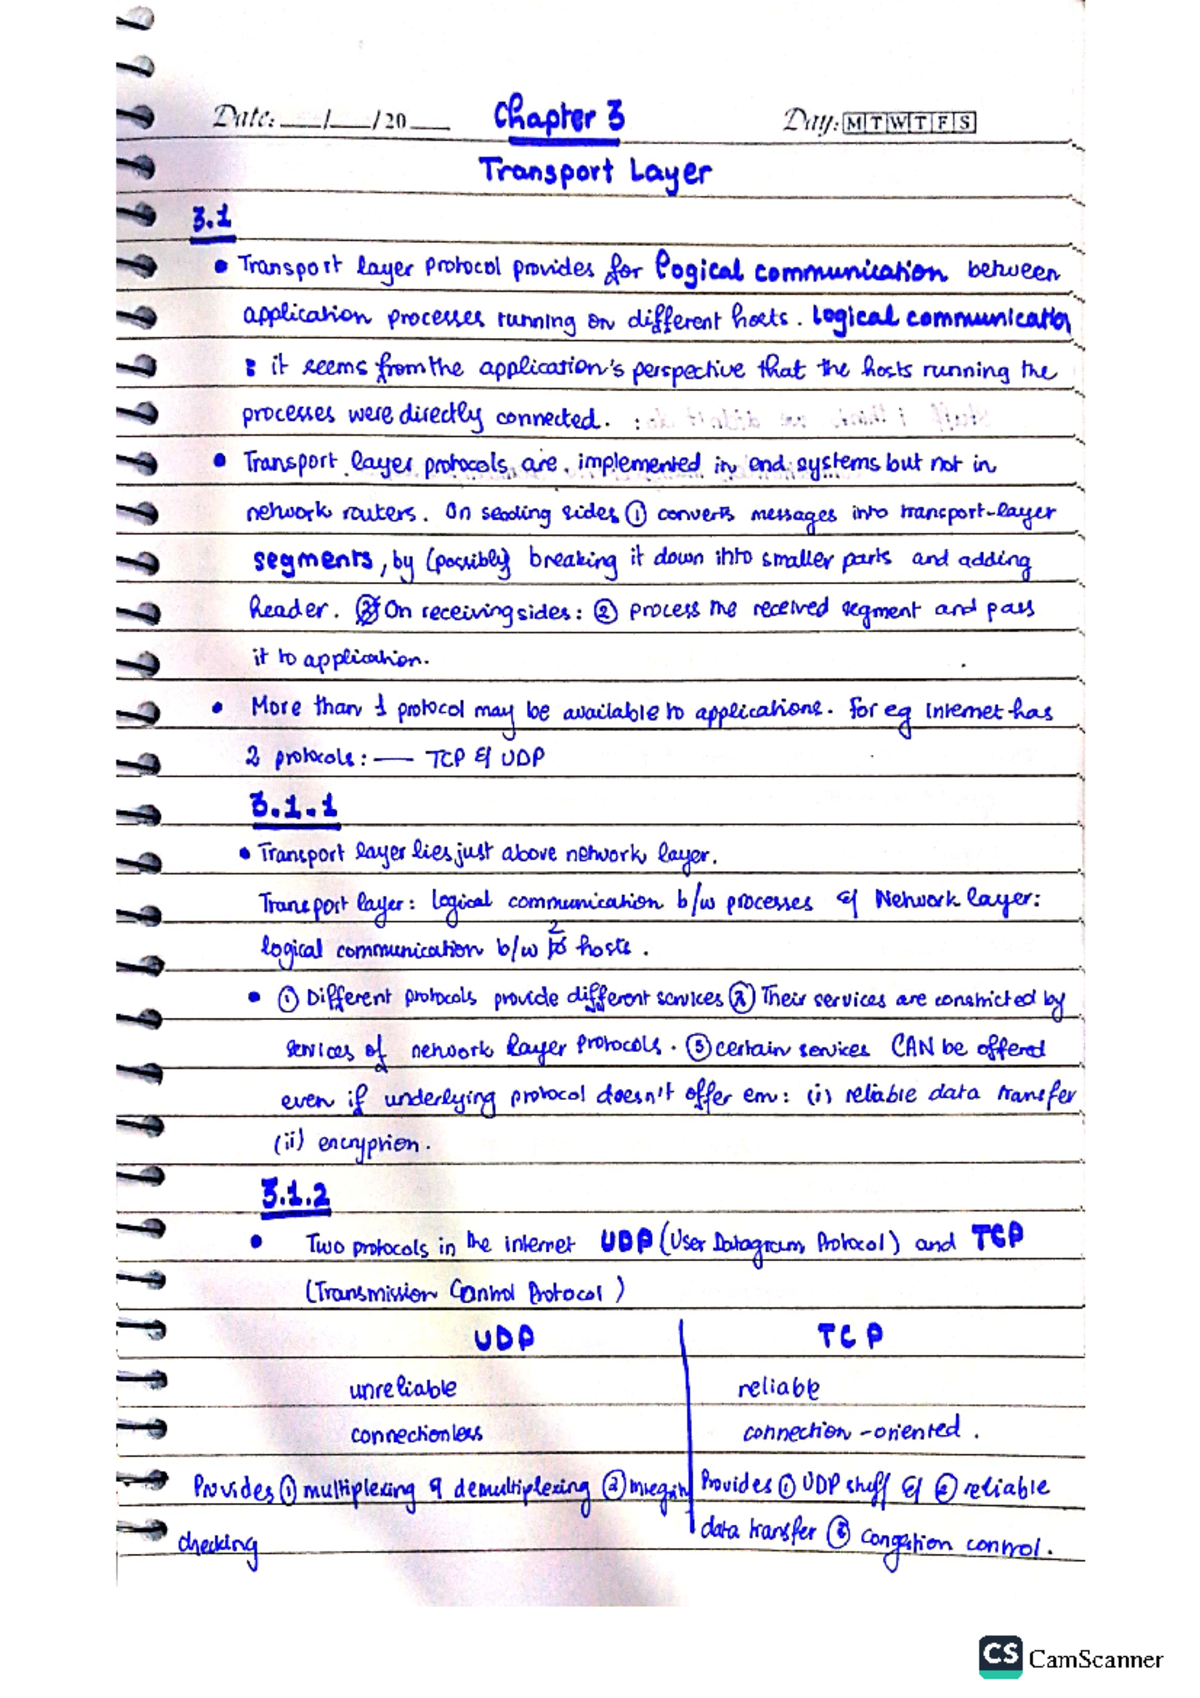 Date: ___/___/20___ Chapter 3 Day: M T W T F S
Transport Layer
3.1
• Transport layer protocol provides for logical communication between
application processes running on different hosts. Logical communication
: it seems from the application's perspective that the hosts running the
processes were directly connected.
• Transport layer protocols are implemented in end systems but not in
network routers. On sending sides ① converts messages into transport-layer
segments, by (possibly) breaking it down into smaller parts and adding
header. On receiving sides: ② process the received segment and pass
it to application.
• More than 1 protocol may be available to applications. For eg Internet has
2 protocols: — TCP & UDP
3.1.1
• Transport layer lies just above network layer.
Transport layer: logical communication b/w processes & Network layer:
logical communication b/w 2 hosts.
• ① Different protocols provide different services ② Their services are constricted by
services of network layer protocols. ③ certain services CAN be offered
even if underlying protocol doesn't offer em: (i) reliable data transfer
(ii) encryption.
3.1.2
• Two protocols in the internet UDP (User Datagram Protocol) and TCP
(Transmission Control Protocol)
UDP TCP
unreliable reliable
connectionless connection-oriented.
Provides ① multiplexing & demultiplexing ② integrity Provides ① UDP stuff & ② reliable
checking data transfer ③ congestion control.
CS CamScanner